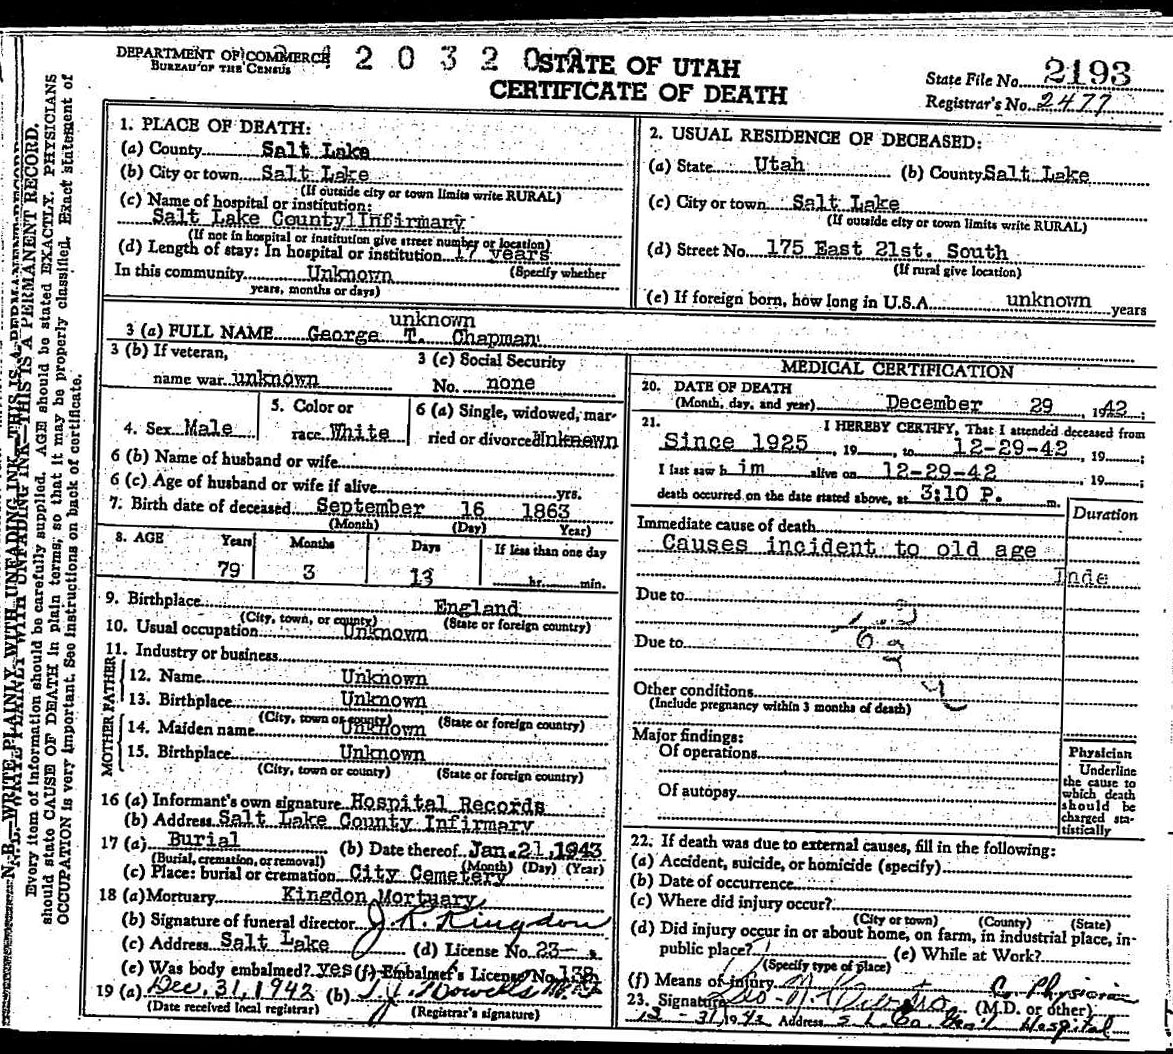 DEPARTMENT OF COMMERCE
BUREAU OF THE CENSUS
2 0 3 2 0
STATE OF UTAH
CERTIFICATE OF DEATH
State File No. 2193
Registrar's No. 2477
N. B.—WRITE PLAINLY WITH UNFADING INK—THIS IS A PERMANENT RECORD.
Every item of information should be carefully supplied. AGE should be stated EXACTLY. PHYSICIANS
should state CAUSE OF DEATH in plain terms, so that it may be properly classified. Exact statement of
OCCUPATION is very important. See instructions on back of certificate.
1. PLACE OF DEATH:
(a) County Salt Lake
(b) City or town Salt Lake
(If outside city or town limits write RURAL)
(c) Name of hospital or institution:
Salt Lake County Infirmary
(If not in hospital or institution give street number or location)
(d) Length of stay: In hospital or institution 17 years
In this community Unknown (Specify whether
years, months or days)
2. USUAL RESIDENCE OF DECEASED:
(a) State Utah (b) County Salt Lake
(c) City or town Salt Lake
(If outside city or town limits write RURAL)
(d) Street No. 175 East 21st. South
(If rural give location)
(e) If foreign born, how long in U.S.A. unknown years
unknown
3 (a) FULL NAME George T. Chapman
3 (b) If veteran,
name war unknown
3 (c) Social Security
No. none
4. Sex Male
5. Color or
race White
6 (a) Single, widowed, mar-
ried or divorced Unknown
6 (b) Name of husband or wife
6 (c) Age of husband or wife if alive yrs.
7. Birth date of deceased September 16 1863
(Month) (Day) Year)
8. AGE Years Months Days If less than one day
79 3 13 hr. min.
9. Birthplace England
(City, town, or county) (State or foreign country)
10. Usual occupation Unknown
11. Industry or business
FATHER
12. Name Unknown
13. Birthplace Unknown
(City, town or county) (State or foreign country)
MOTHER
14. Maiden name Unknown
15. Birthplace Unknown
(City, town or county) (State or foreign country)
16 (a) Informant's own signature Hospital Records
(b) Address Salt Lake County Infirmary
17 (a) Burial (b) Date thereof Jan. 21, 1943
(Burial, cremation, or removal) (Month) (Day) (Year)
(c) Place: burial or cremation City Cemetery
18 (a) Mortuary Kingdon Mortuary
(b) Signature of funeral director J. R. Kingdon
(c) Address Salt Lake (d) License No. 23
(e) Was body embalmed? yes (f) Embalmer's License No. 138
19 (a) Dec. 31, 1942 (b)
(Date received local registrar) (Registrar's signature)
MEDICAL CERTIFICATION
20. DATE OF DEATH
(Month, day, and year) December 29, 1942;
21. I HEREBY CERTIFY, That I attended deceased from
Since 1925, 19, to 12-29-42, 19;
I last saw him alive on 12-29-42, 19;
death occurred on the date stated above, at 3:10 P. m.
Duration
Immediate cause of death
Causes incident to old age
Inde
Due to
Due to
Other conditions
(Include pregnancy within 3 months of death)
Major findings:
Of operations
Of autopsy
Physician
Underline
the cause to
which death
should be
charged sta-
tistically
22. If death was due to external causes, fill in the following:
(a) Accident, suicide, or homicide (specify)
(b) Date of occurrence
(c) Where did injury occur?
(City or town) (County) (State)
(d) Did injury occur in or about home, on farm, in industrial place, in-
public place? (e) While at Work?
(Specify type of place)
(f) Means of injury Co Physician
23. Signature (M.D. or other)
12-31, 1942 Address S. L. Co. Gen'l Hospital